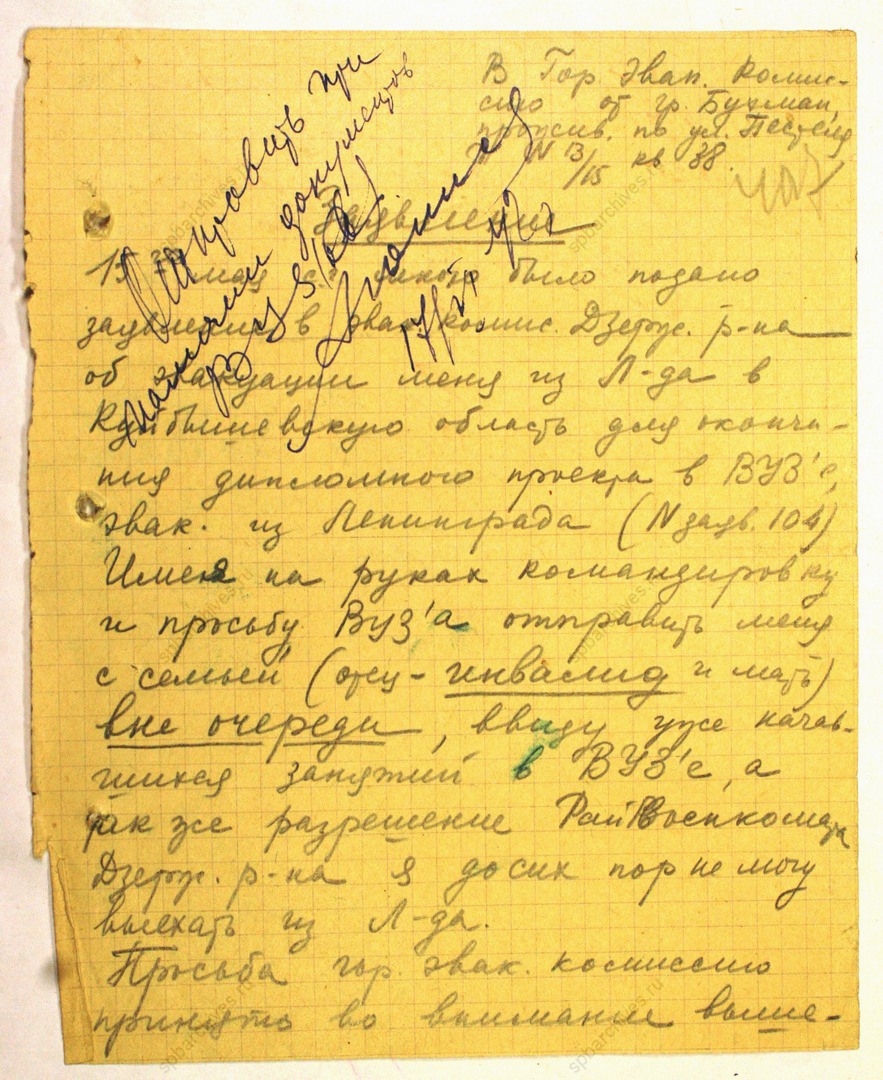 В Гор. Эвак. Комис-
сию от гр. Бухман,
прожив. по ул. Пестеля
N 13/15 кв 38.
Заявление
15 мая с/г мною было подано
заявление в эвак. комис. Дзерж. р-на
об эвакуации меня из Л-да в
Куйбышевскую область для оконча-
ния дипломного проекта в ВУЗ'е,
эвак. из Ленинграда (N заяв. 104)
Имея на руках командировку
и просьбу ВУЗ'а отправить меня
с семьей (отец - инвалид и мать)
вне очереди, ввиду уже начав-
шихся занятий в ВУЗ'е, а
так же разрешение Райвоенкомата
Дзерж. р-на я до сих пор не могу
выехать из Л-да.
Просьба гор. эвак. комиссию
принять во внимание выше-
Отправить при
наличии документов
ВУЗ'ов
17/VI 42г
spbarchives.ru